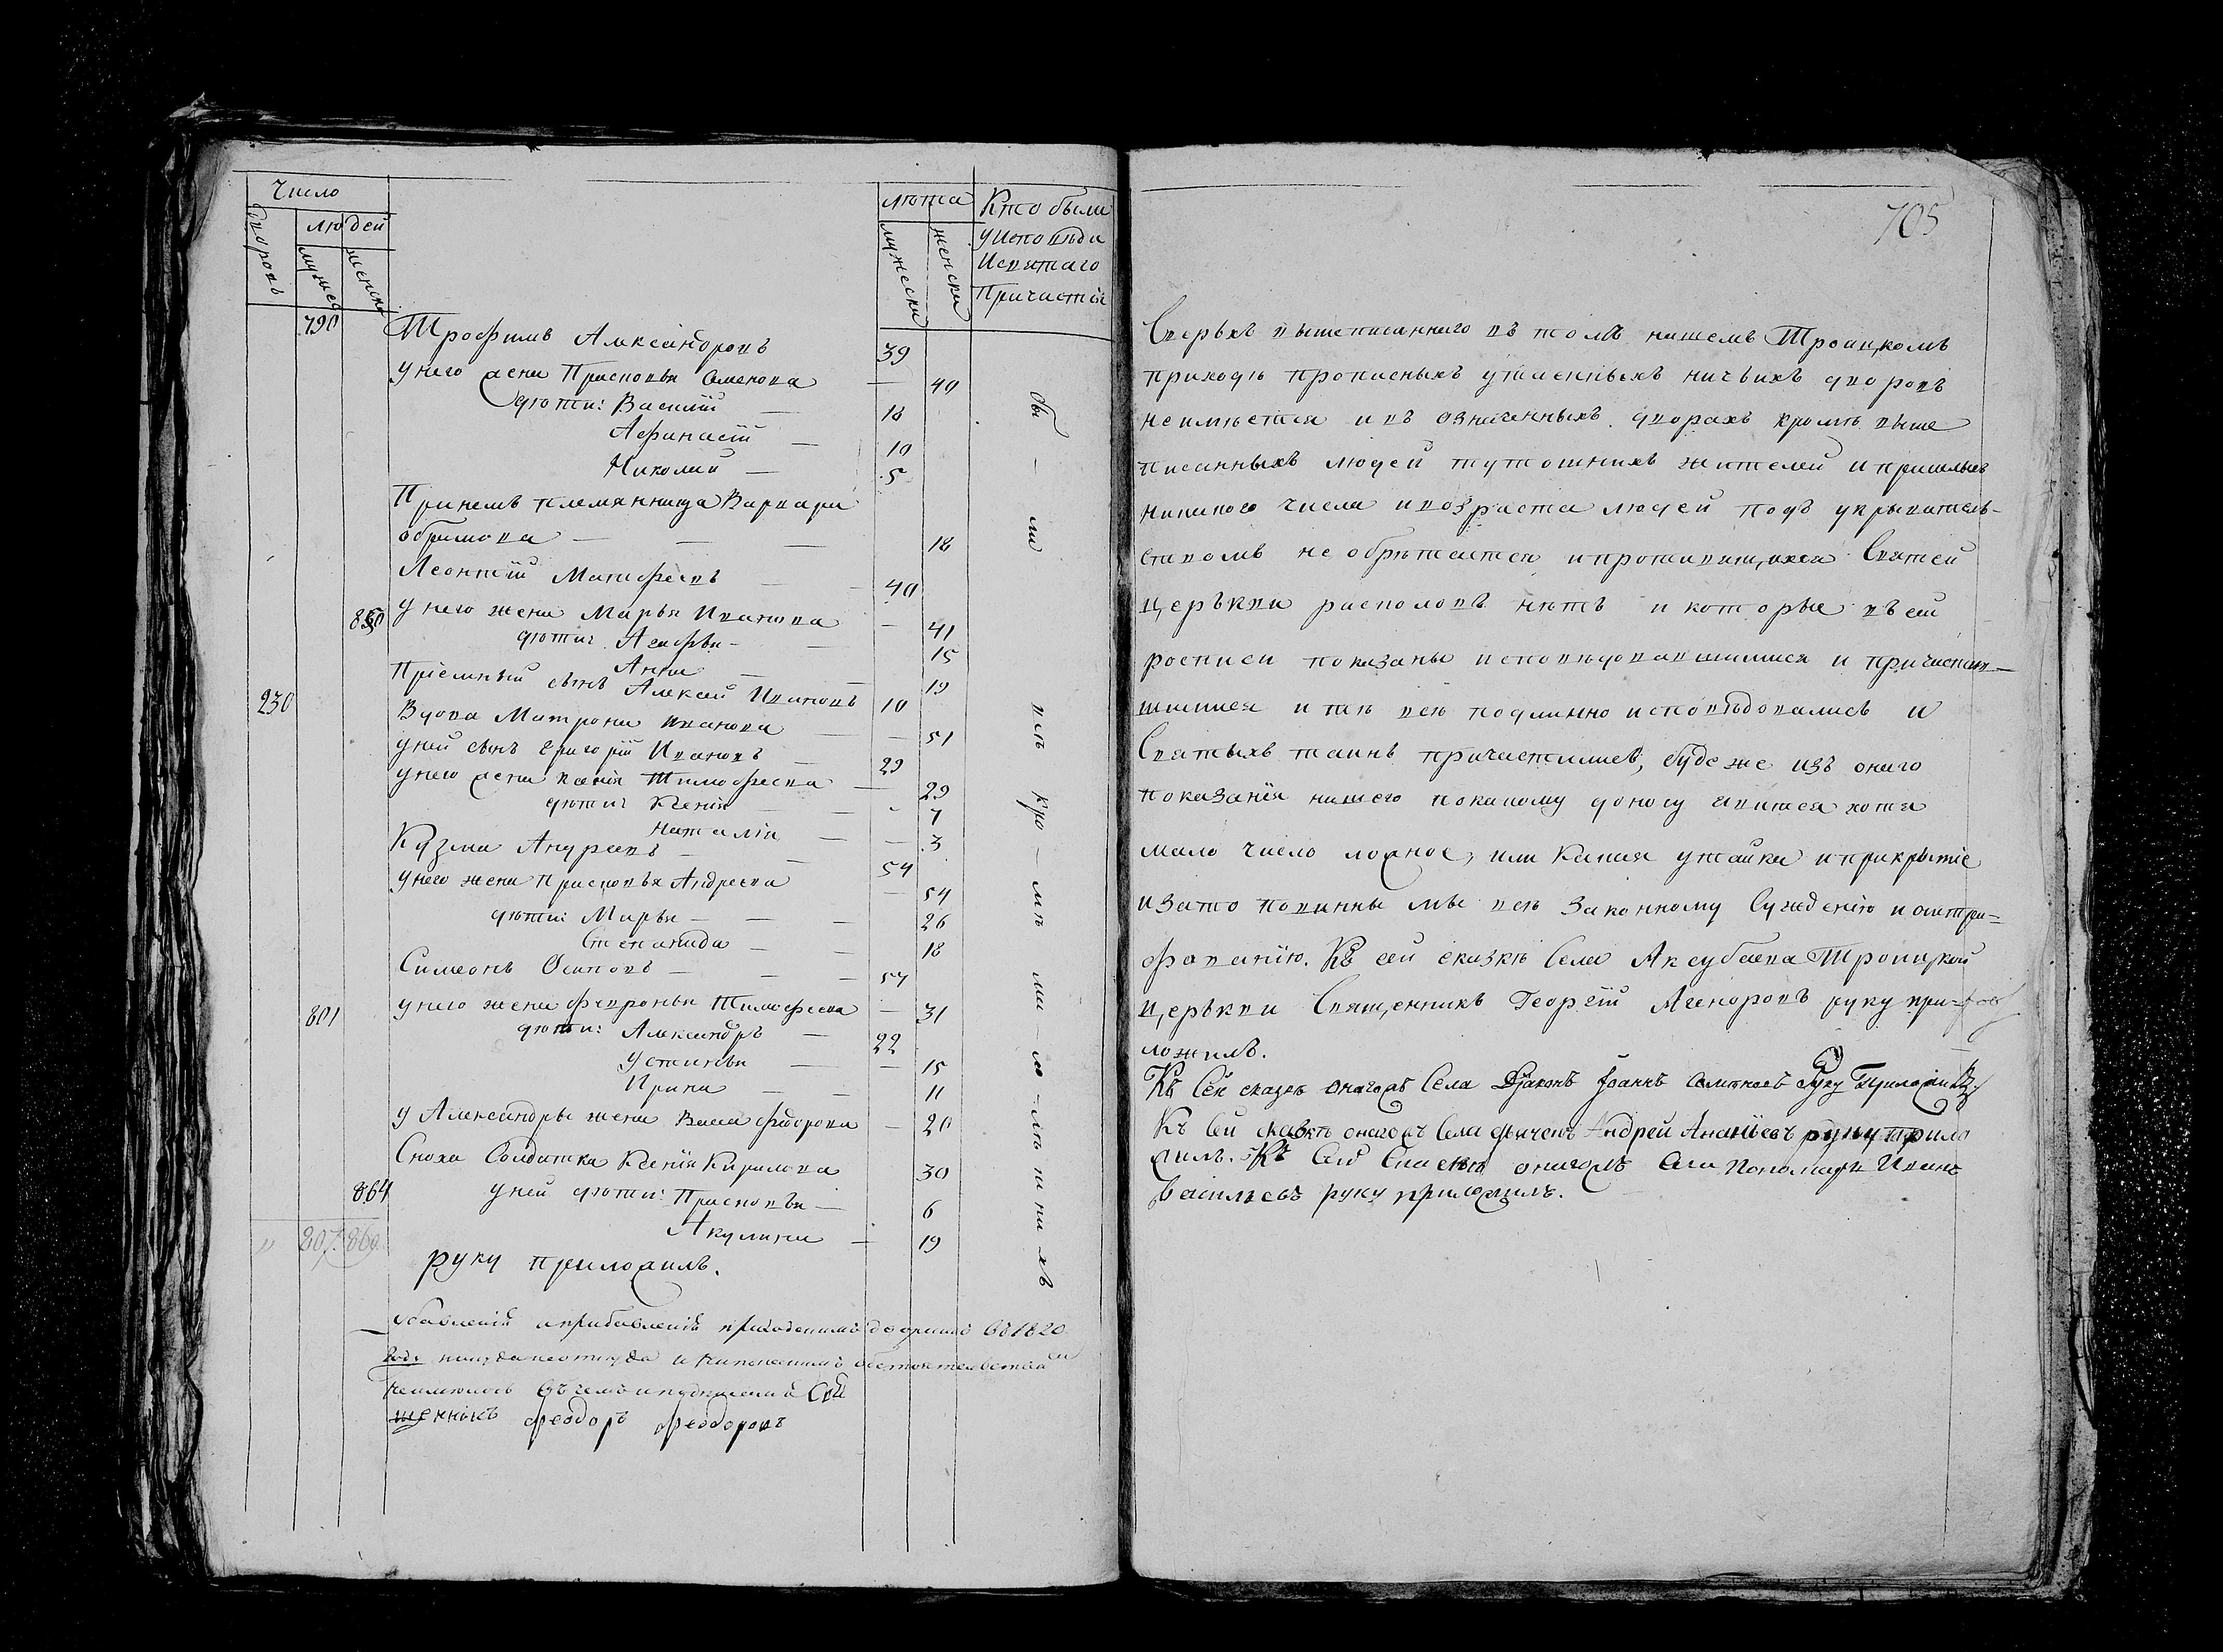 Число
дворовъ
людей
мужеска
женска
люта
мужески
женски
Кто были
у Исповѣди
И святаго
Причастія
790 Трофимъ Александровъ 39
У него жена Прасковья Семенова — 40
дѣти: Василій — 18
Афанасій — 10
Николай — 5
При немъ племянница Варвара
Ефимова — — — 18
Леонтій Матфеевъ — — 40
850 у него жена Марья Иванова — 41
дѣти: Агафья — — 15
Анна — — 19
Пріемный сынъ Алексей Ивановъ 10
230 Вдова Матрона Иванова — — 51
у ней сынъ Григорій Ивановъ — 29
у него жена Ксенія Тимофеева — 29
дѣти: Ксенія — — 7
Наталія — — 3
Козма Андреевъ — — 54
у него жена Прасковья Андреева — 54
дѣти: Марья — — — 26
Степанида — — 18
Симеонъ Осиповъ — — — 54
801 у него жена Февронья Тимофеева — 31
дѣти: Александръ — 22
Устинья — — 15
Ирина — — 11
у Александры жена Васса Федорова — 20
Сноха Солдатка Ксенія Кирилова 30
864 у ней дѣти: Прасковья — 6
Акулина — 19
" 807. 869.
бы — ли
всѣ кро — мѣ
ма — ло — лѣ тн ни хъ
руку приложилъ.
Убавленій и прибавленій приходскимъ дворамъ въ 1820
годѣ никуда неоткуда и ни по какимъ обстоятельствамъ
неимелось въ чемъ и подписался Свя
щенникъ Феодоръ Феодоровъ
705
Сверьхъ вышеписаннаго въ томъ нашемъ Троицкомъ
приходѣ прописныхъ утаенныхъ ничьихъ дворовъ
неимѣется и въ означенныхъ дворахъ кромѣ выше
писанныхъ людей тутошнихъ жителей и пришлыхъ
никакого числа и возраста людей подъ укрывательствомъ-
ствомъ не обрѣтается и противящихся Святей
церькви расколовъ нѣтъ и которые въ сей
росписи показаны исповѣдовавшимися и причастив—
шимися и тѣ всѣ подлинно исповѣдовались и
Святыхъ таинъ причастились, буде же изъ онаго
показанія нашего по какому доносу явится хотя
мало число ложное, или какая утайка и прикрытіе
и за то повинны мы всѣ законному Сужденію и оштра=
фованію. Къ сей сказкѣ Села Аксубаева Троицкой
церькви Священникъ Георгій Агеноровъ руку при=
ложилъ.
Къ Сей сказкѣ онагожъ Села Діаконъ Іоаннъ руку приложилъ
Къ Сей сказкѣ онагожъ Села дьячекъ Андрей Ананіевъ руку прило
жилъ. Къ Сей Сказкѣ онагожъ Села Пономарь Иванъ
Васильевъ руку приложилъ.